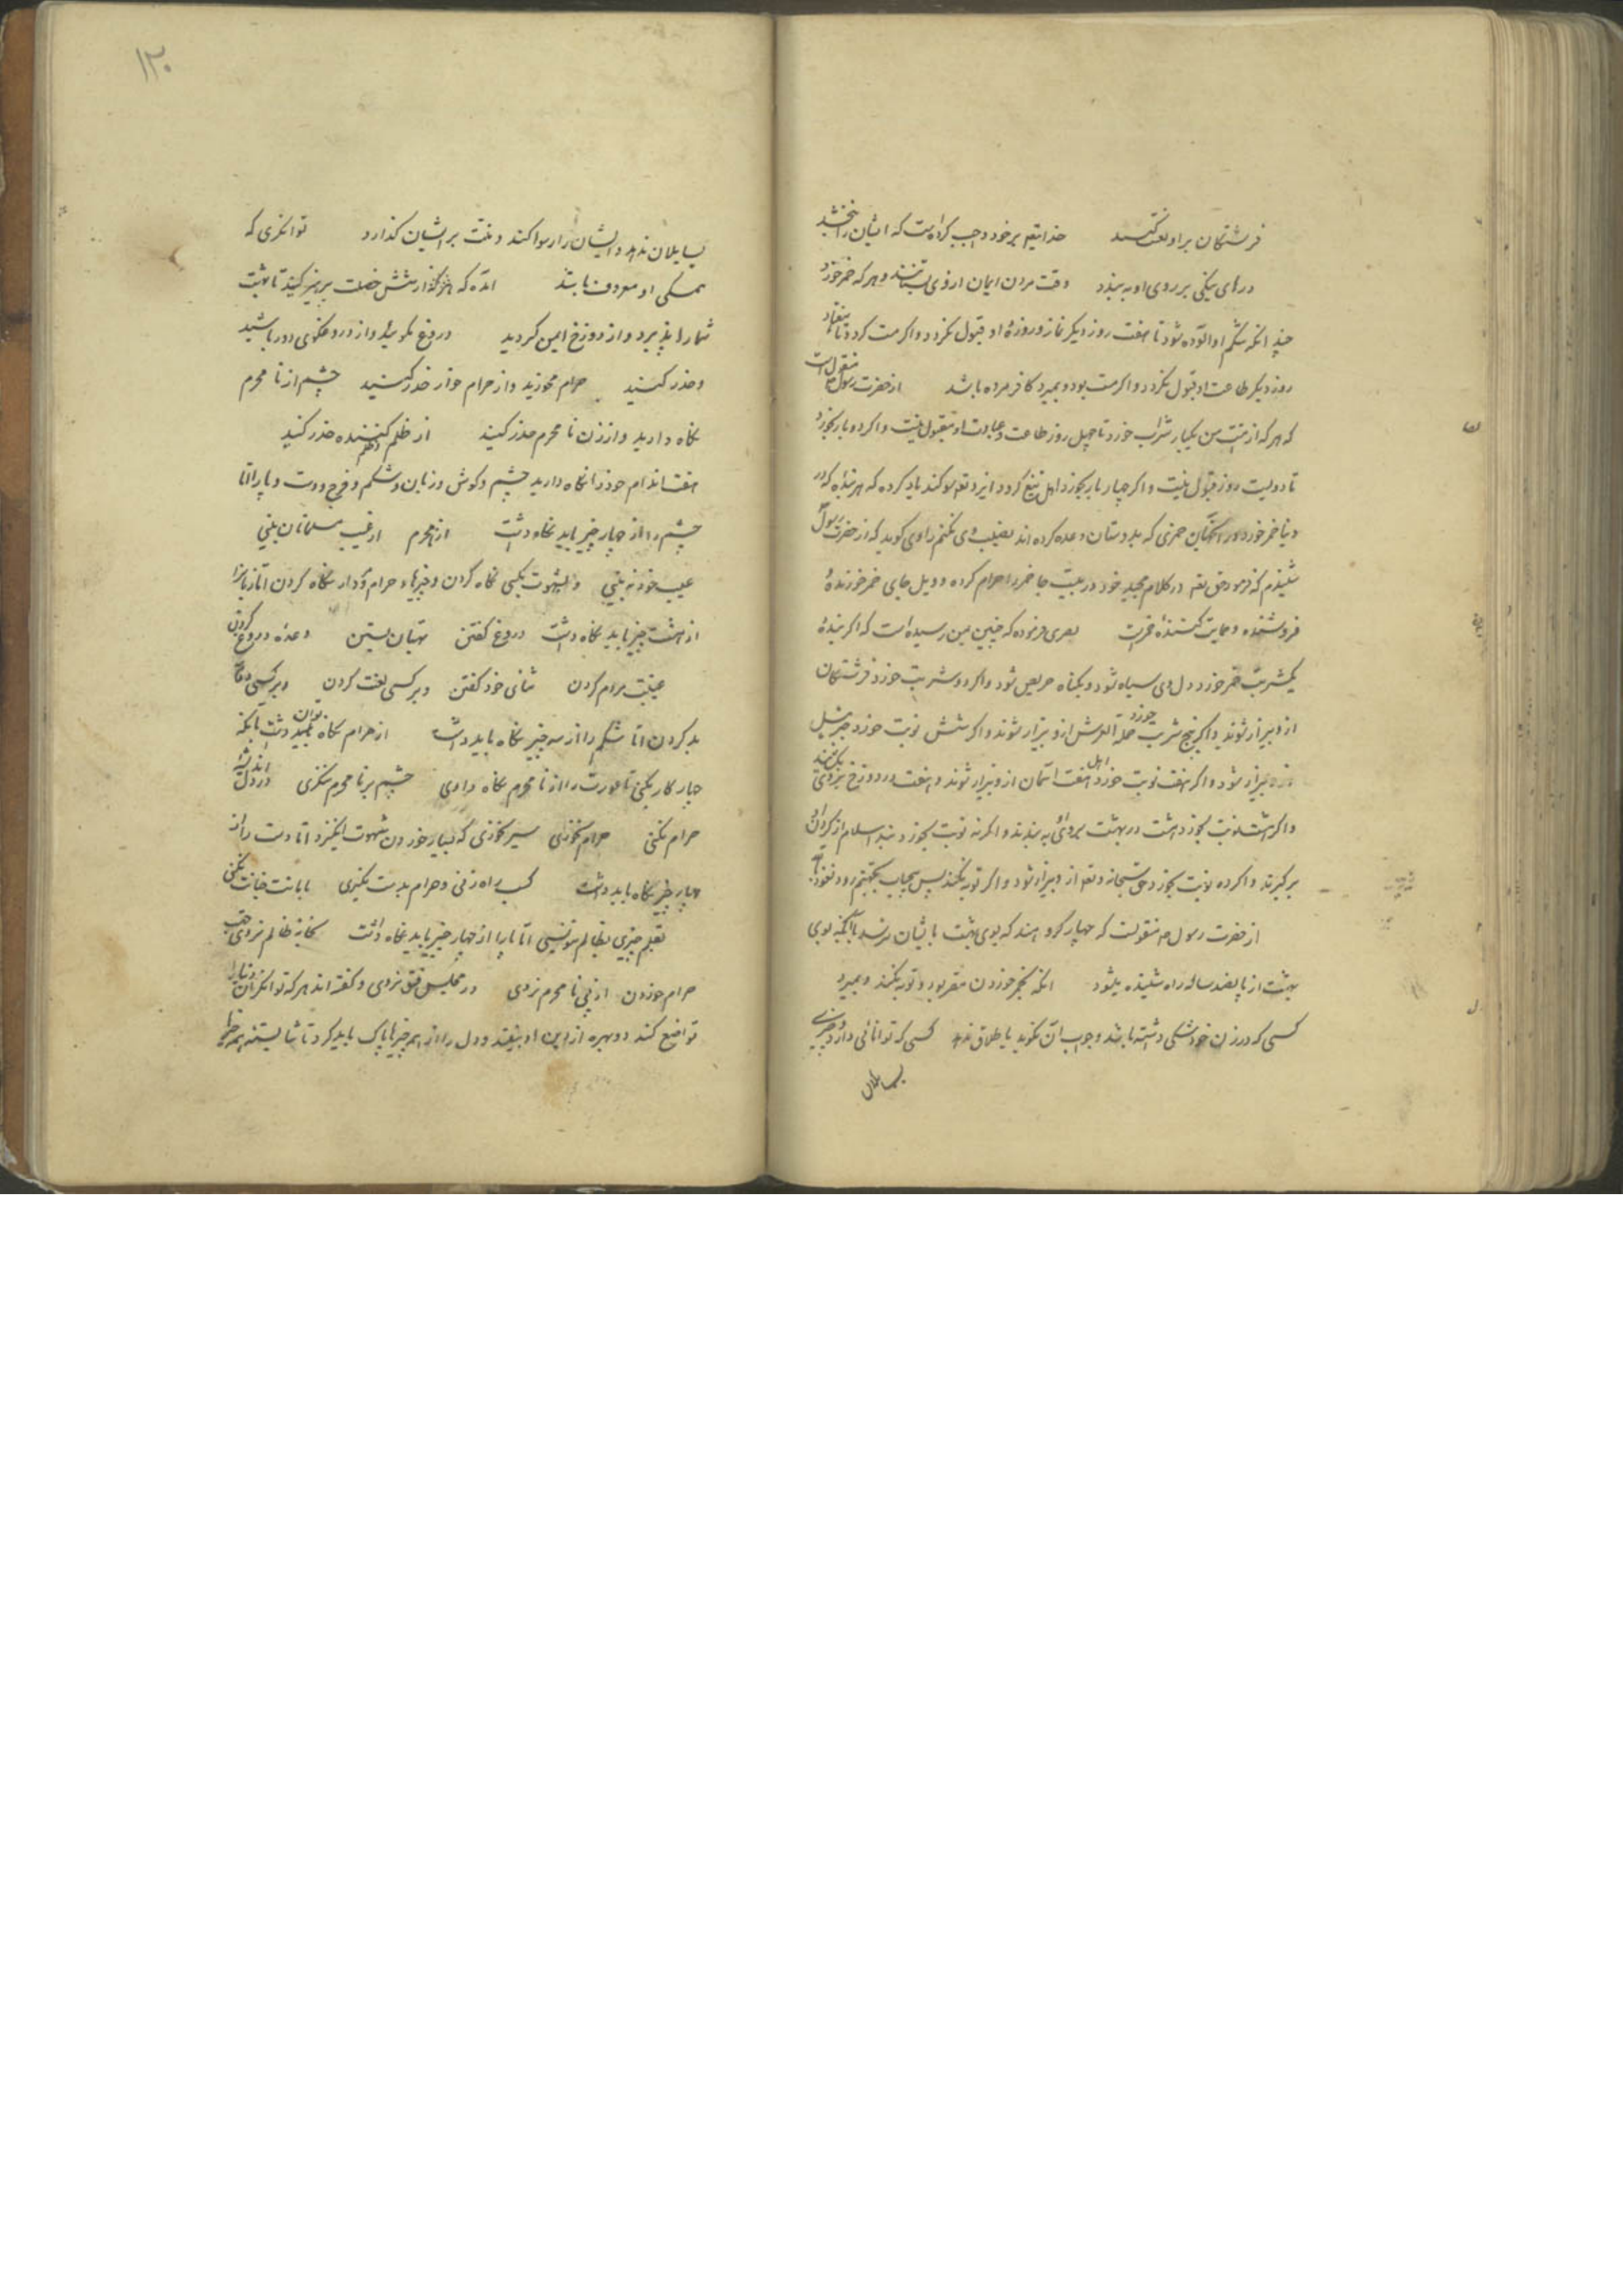 فرشتگان براو لعنت کنند خدایتعم بر خود واجب کرده است که ایشان را نبخشد
درهای نیکی بر روی او به بندد وقت مردن ایمان از وی بستانند و هر که خمر خورد
چند انکه شکم او الوده شود تا هفت روز دیکر نماز و روزهٔ او قبول نکردد و اکر مست کردد تا هفتاد
روز دیکر طاعت او قبول نکردد و اکر مست بود و بمیرد کافر مرده باشد از حضرت رسول ص منقول است
که هر که از امت من یکبار شراب خورد تا چهل روز طاعت و عبادت او مقبول نیست و اکر دو بار بخورد
تا دویست روز قبول نیست و اکر چهار بار بخورد ایزد تعم سوکند یاد کرده که هر بنده که در
دنیا خمر خورد که بدوستان وعده کرده اند نصیب وی نکنم راوی کوید که از حضرت رسول
شنیدم که فرمود حق تعم در کلام مجید خود در بیست جا خمر را حرام کرده و ویل جای خمر خورندهٔ
فروشنده و حمایت کنندهٔ خمرست بصری فرموده که چنین بمن رسیده است که اکر بندهٔ
یکشربت خمر خورد دل وی سیاه شود و بکناه حریص شود و اکر دو شربت خورد فرشتکان
از و بیزار شوند و اکر پنج شربت خورد حمله العرش از و بیزار شوند و اکر شش نوبت خورد جبرئیل
از و بیزار شود و اکر هفت نوبت خورد اهل هفت اسمان از و بیزار شوند و هفت در دوزخ بروی
و اکر هشت نوبت بخورد هشت در بهشت بروی به بندند و اکر نه نوبت بخورد بند اسلام از کردن او
بر کیرند و اکر ده نوبت بخورد حق سبحانه و تعم از و بیزار شود و اکر توبه نکند پس بجهنم رود نعوذ بالله
از حضرت رسول ص منقولست که چهار کروه اند که بوی بهشت بایشان نرسد با انکه بوی
بهشت از پانصد ساله راه شنیده میشود انکه بخمر خوردن مقر بود و توبه نکند و بمیرد
کسی که در زن خود شکی داشته باشد و جواب ان نکوید یا طلاق ندهد کسی که توانائی دارد و چیزی
بسایلان
۱۳۰
بسایلان ندهد و ایشان را رسوا کند و منت بر ایشان کذارد توانکری که
ممسکی او معروف باشد امده که هر که از شش خصلت پرهیز کنید تا بهشت
شما را پذیرد و از دوزخ ایمن کردید دروغ مکوئید و از دروغکوی دور باشید
و حذر کنید حرام مخورید و از حرام خوار حذر کنید چشم از نا محرم
نکاه دارید و از زن نا محرم حذر کنید از ظلم کننده حذر کنید
هفت اندام خود را نکاه دارید چشم و کوش و زبان و شکم و فرج و دست و پا را اما
چشم را از چهار چیز باید نکاه داشت از محرم از عیب مسلمانان بینی
عیب خود نه بینی و بشهوت بکسی نکاه کردن و چیزهاء حرام نکاه کردن اما زبانرا
از هشت چیز باید نکاه داشت دروغ کفتن بهتان بستن وعده دروغ کردن
غیبت مردم کردن ثنای خود کفتن و بر کسی لعنت کردن و بر کسی دعای
بد کردن اما شکم را از سه چیز نکاه باید داشت از حرام نکاه توان داشت بانکه
چهار کار بکنی تا عورت را از نا محرم نکاه داری چشم بر نا محرم ننکری در دل اندیشه
حرام نکنی حرام نخوری سیر نخوری که بسیار خوردن شهوت انکیزد اما دست را از
چهار چیز نکاه باید داشت کسب راه زنی و حرام بدست نکیری بامانت خیانت نکنی
بقلم چیزی بظالم ننویسی اما پا را از چهار چیز باید نکاه داشت بخانهٔ ظالم نروی
حرام خوردن از پی نا محرم نروی در مجلس فسق نروی و کفته اند هر که توانکران دنیا را
تواضع کند دو بهره از دین او بیفتد و دل را از همه چیزها پاک باید کرد تا شایسته